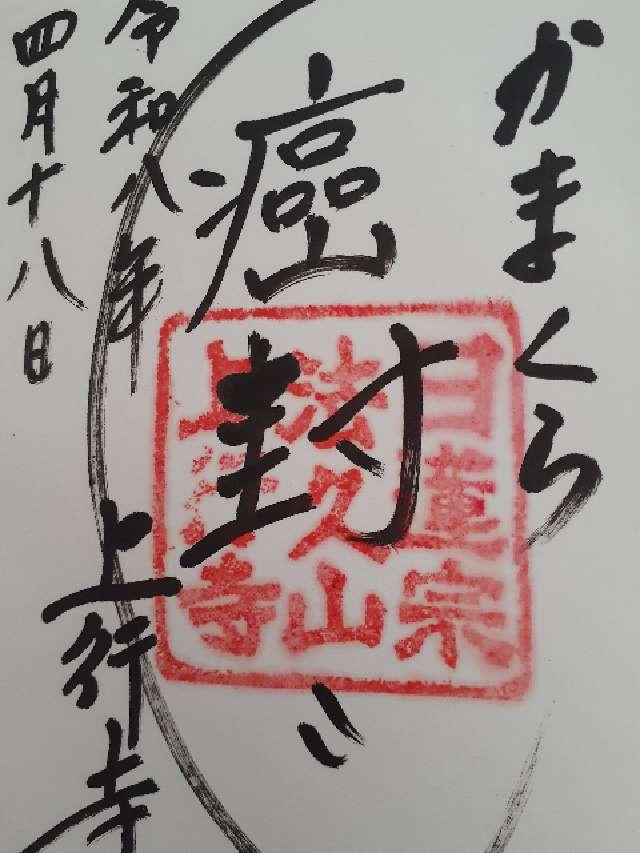 かまくら
癌封じ
令和八年
四月十八日
上行寺
日蓮宗
法久山
上行寺